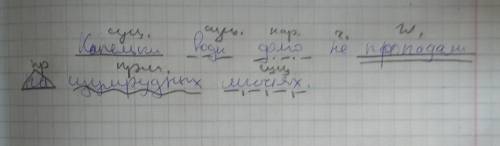 сущ. сущ. нар. ч. гл.
Капельки воды долго не пропадали
пр прил. сущ
на изумрудных листьях.